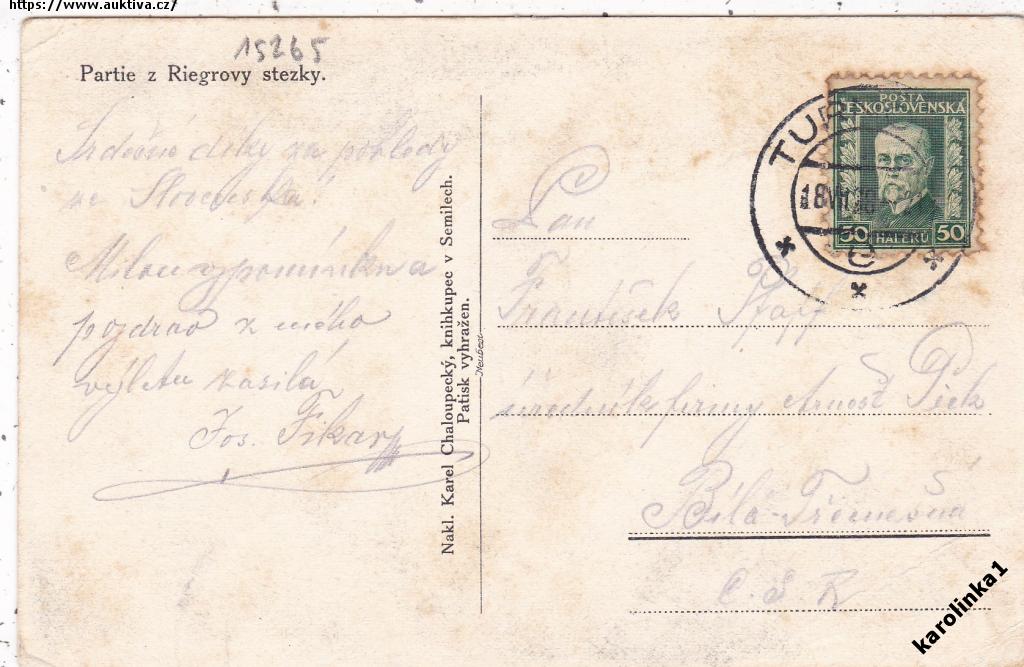 https://www.auktiva.cz/
15265
Partie z Riegrovy stezky.
Srdečné díky za pohledy
ze Slovenska!
Milou vzpomínku a
pozdrav z mého
výletu zasílá
Jos. Fikar
Nakl. Karel Chaloupecký, knihkupec v Semilech.
Patisk vyhražen.
Neubert
POŠTA
ČESKOSLOVENSKÁ
50 HALÉŘŮ 50
TUR
18 VII
C
Pan
František Pfaff
úředník firmy Arnošt Pick
Bílá-Třemešná
Č. S. R.
karolinka1